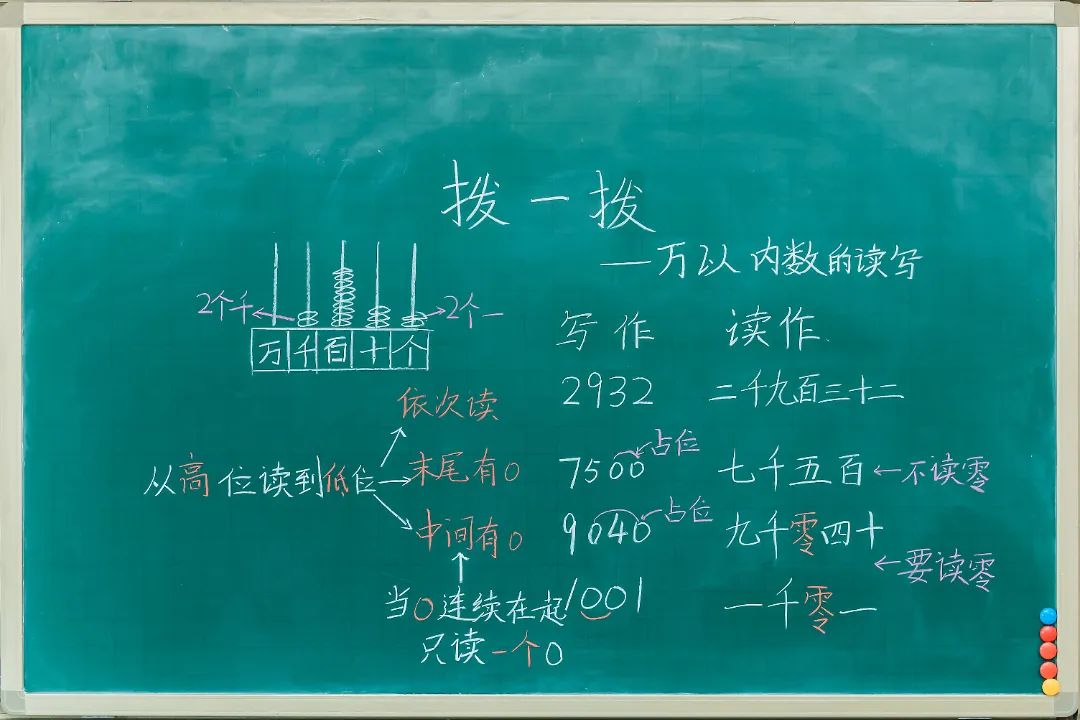 拨一拨
——万以内数的读写
2个千 2个一
万千百十个
写作 读作
2932 二千九百三十二
依次读
从高位读到低位
末尾有0
7500 占位 七千五百 ←不读零
中间有0
9040 占位 九千零四十
←要读零
当0连续在起 1001 一千零一
只读一个0